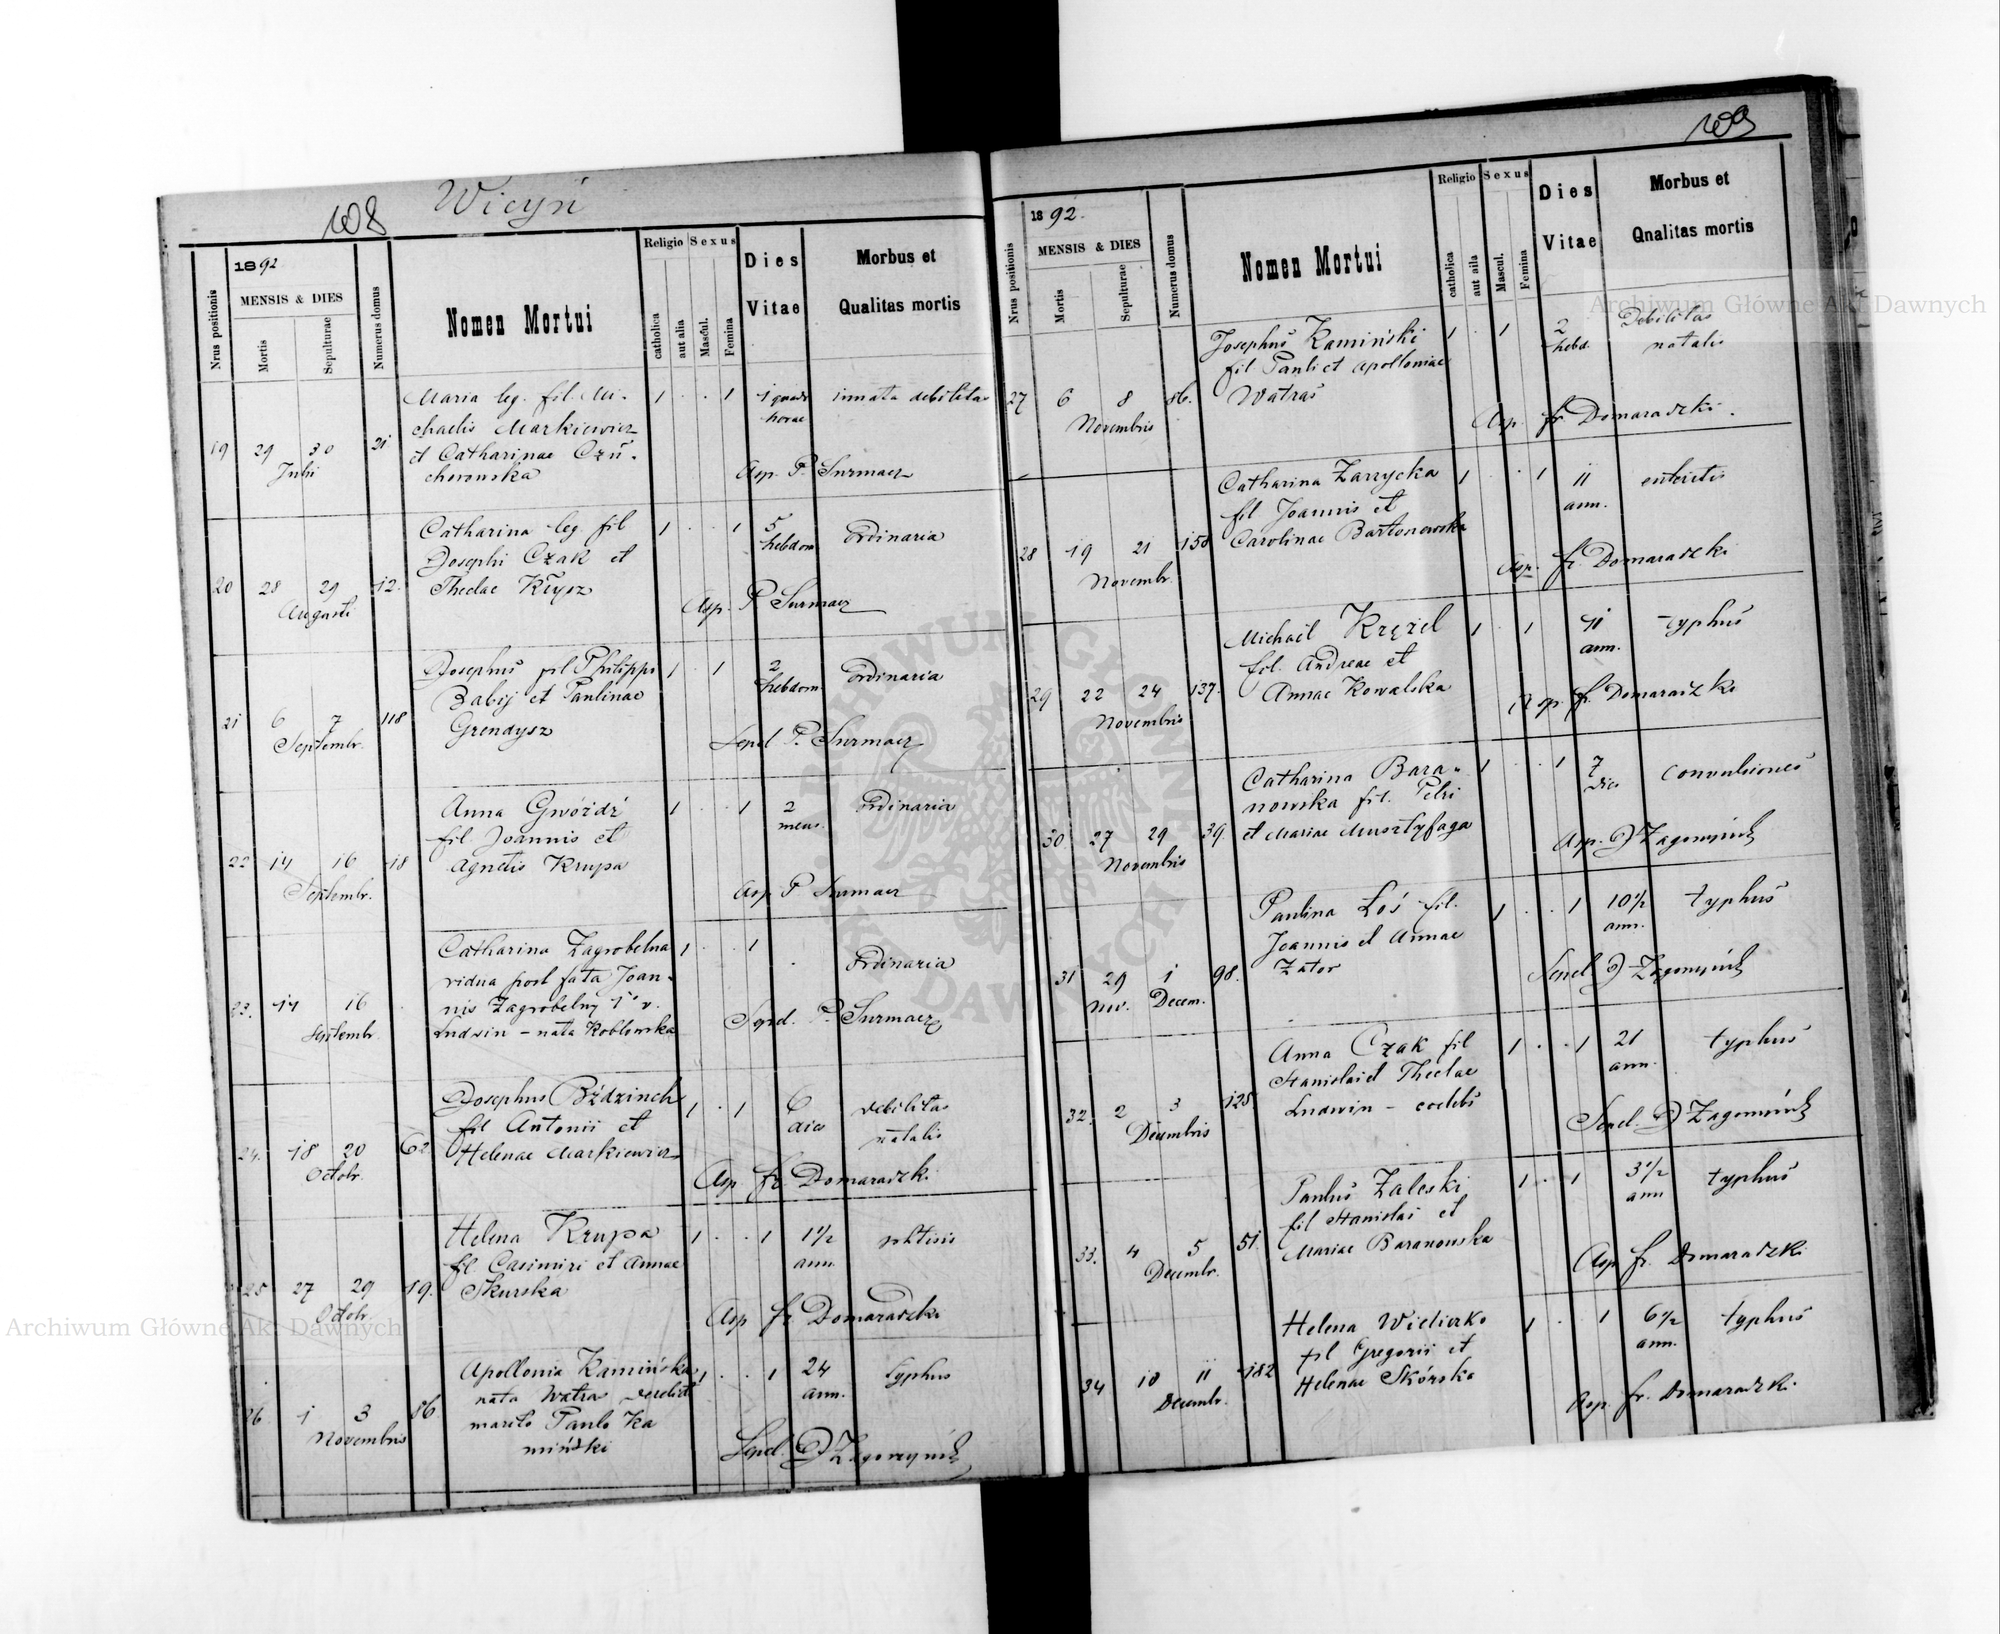 108
Wicyń
1892
Nrus positionis
MENSIS & DIES
Mortis
Sepulturae
Numerus domus
Nomen Mortui
Religio
catholica
aut alia
Sexus
Mascul.
Femina
Dies Vitae
Morbus et
Qualitas mortis
19 29 30 Julii 21
Maria leg. fil. Mi-
chaelis Markiewicz
et Catharinae Czu-
chorowska
1 . . 1
horae
innata debilitas
Asp. P. Surmacz
20 28 29 Augusti 12.
Catharina leg. fil
Josephi Czak et
Theclae Kłysz
1 . . 1
5 hebdom
Ordinaria
Asp. P Surmacz
21 6 7 Septembr. 118
Josephus fil Philippi
Babij et Paulinae
Grendysz
1 . 1
2 hebdom.
Ordinaria
Sepel P. Surmacz
22 14 16 Septembr. 18
Anna Gwóźdź
fil Joannis et
Agnetis Krupa
1 . . 1
2 mens.
Ordinaria
Asp P Surmacz
23. 14 16 Septembr .
Catharina Zagrobelna
vidua post fata Joan-
nis Zagrobelny 1o v.
Ludwin - nata Koblowska
1 . . 1
.
Ordinaria
Sepel. P. Surmacz
24. 18 20 Octobr. 62
Josephus Bździuch
fil Antonii et
Helenae Markiewicz
1 . 1
6 dies
debilitas
natalis
Asp fr. Domaradzki
25 27 29 Octobr. 19.
Helena Krupa
fil Casimiri et Annae
Skurska
1 . . 1
1 1/2 ann.
phtisis
Asp fr Domaradzki
26. 1 3 Novembris 86
Apollonia Kamińska
nata Watra
marito Paulo Ka
miński
1 . . 1
24 ann.
typhus
Sepel. D Zagorzyński
109
1892.
Nrus positionis
MENSIS & DIES
Mortis
Sepulturae
Numerus domus
Nomen Mortui
Religio
catholica
aut alia
Sexus
Mascul.
Femina
Dies Vitae
Morbus et
Qnalitas mortis
27 6 8 Novembris 86.
Josephus Kamiński
fil Pauli et Apolloniae
Watras
1 . 1
2 hebd.
Debilitas
natalis
Asp. fr Domaradzki.
28 19 21 Novembr. 158
Catharina Zarzycka
fil Joannis et
Carolinae Bartonowska
1 . 1
11 ann.
enteritis
Asp. fr. Domaradzki
29 22 24 Novembris 137.
Michael Krężel
fil. Andreae et
Annae Kowalska
1 . 1
11 ann.
typhus
Asp. fr. Domaradzki
30 27 29 Novembris 39.
Catharina Bara-
nowska fil. Petri
et Mariae Musztyfaga
1 . . 1
7 dies
convulsiones
Asp. D Zagorzyński
31 29 Nov. 1 Decem. 98.
Paulina Łoś fil.
Joannis et Annae
Zator
1 . . 1
10 1/2 ann.
typhus
Sepel D Zagorzyński
32. 2 3 Decembris 125
Anna Czak fil
Stanislai et Theclae
Ludwin - coelebs
1 . . 1
21 ann.
typhus
Sepel. D Zagorzyński
33. 4 5 Decembr. 51.
Paulus Zaleski
fil Stanislai et
Mariae Baranowska
1 . 1
3 1/2 ann
typhus
Asp fr. Domaradzki
34 10 11 Decembr. 182
Helena Wilierko
fil Gregorii et
Helenae Skórska
1 . 1
6 1/2 ann.
typhus
Asp. fr. Domaradzki.
Archiwum Główne Akt Dawnych
Archiwum Główne Akt Dawnych
ARCHIWUM GŁÓWNE AKT DAWNYCH